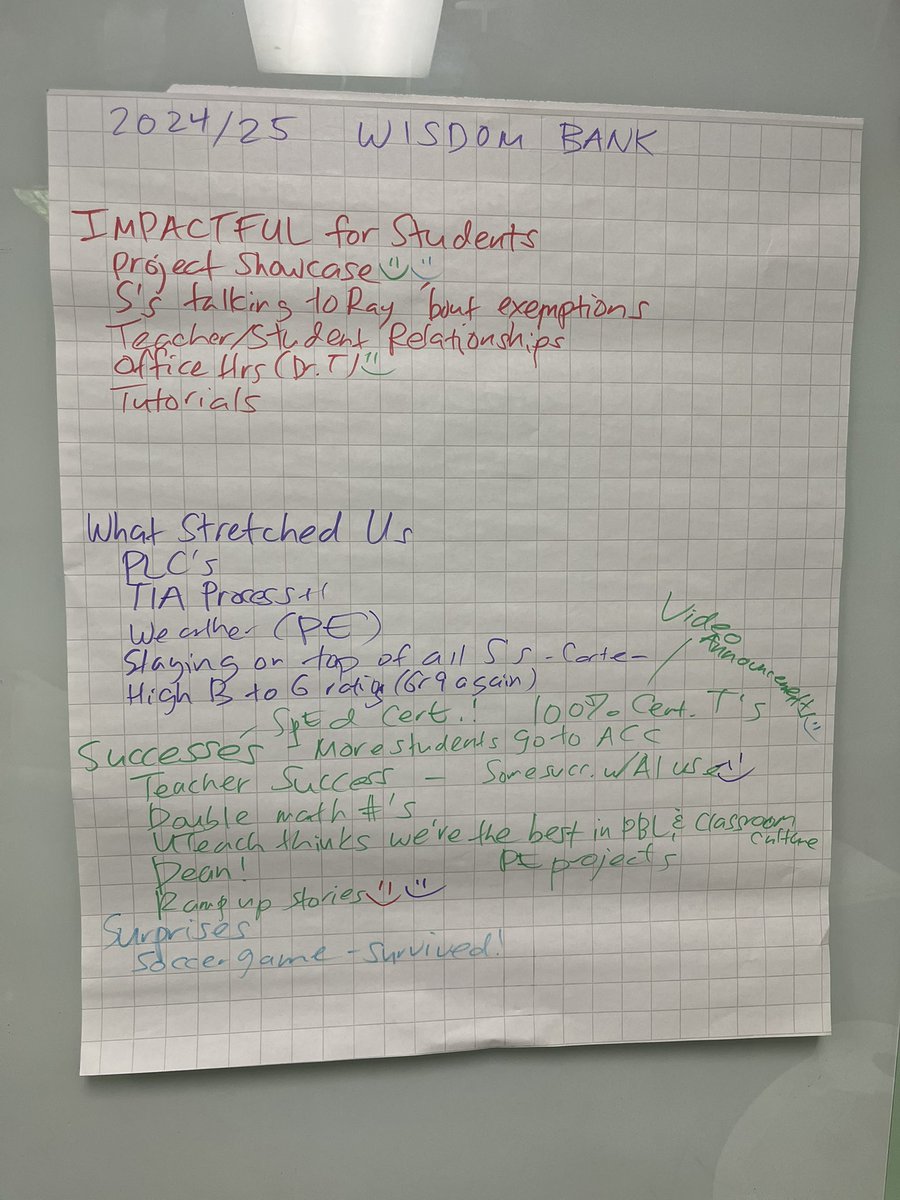 2024/25 WISDOM BANK
IMPACTFUL for Students
Project Showcase
S's talking to Ray 'bout exemptions
Teacher/Student Relationships
Office Hrs (Dr. T)
Tutorials
What Stretched Us
PLC's
TIA Process
Weather (PE)
Staying on top of all S's -
High B to G ratio (Gr 9 again)
Video
Announcements
SpEd Cert.! 100% Cert. T's
Successes More students go to ACC
Teacher Success - Some succ. w/ AI use
Double math #'s
UTeach thinks we're the best in PBL & Classroom
Culture
Dean! PE projects
Ramp up stories
Surprises
Soccer game - survived!